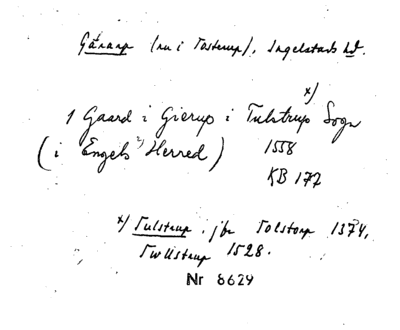 Gårarp (nu i Tosterup), Ingelstads hd.
x)
1 Gaard i Gierup i Tulstrup Sogn
(i Engels Herred) 1558
KB 177
x) Tulstrup. jfr Tolstorp 1374,
Twllstrup 1528.
Nr 8629